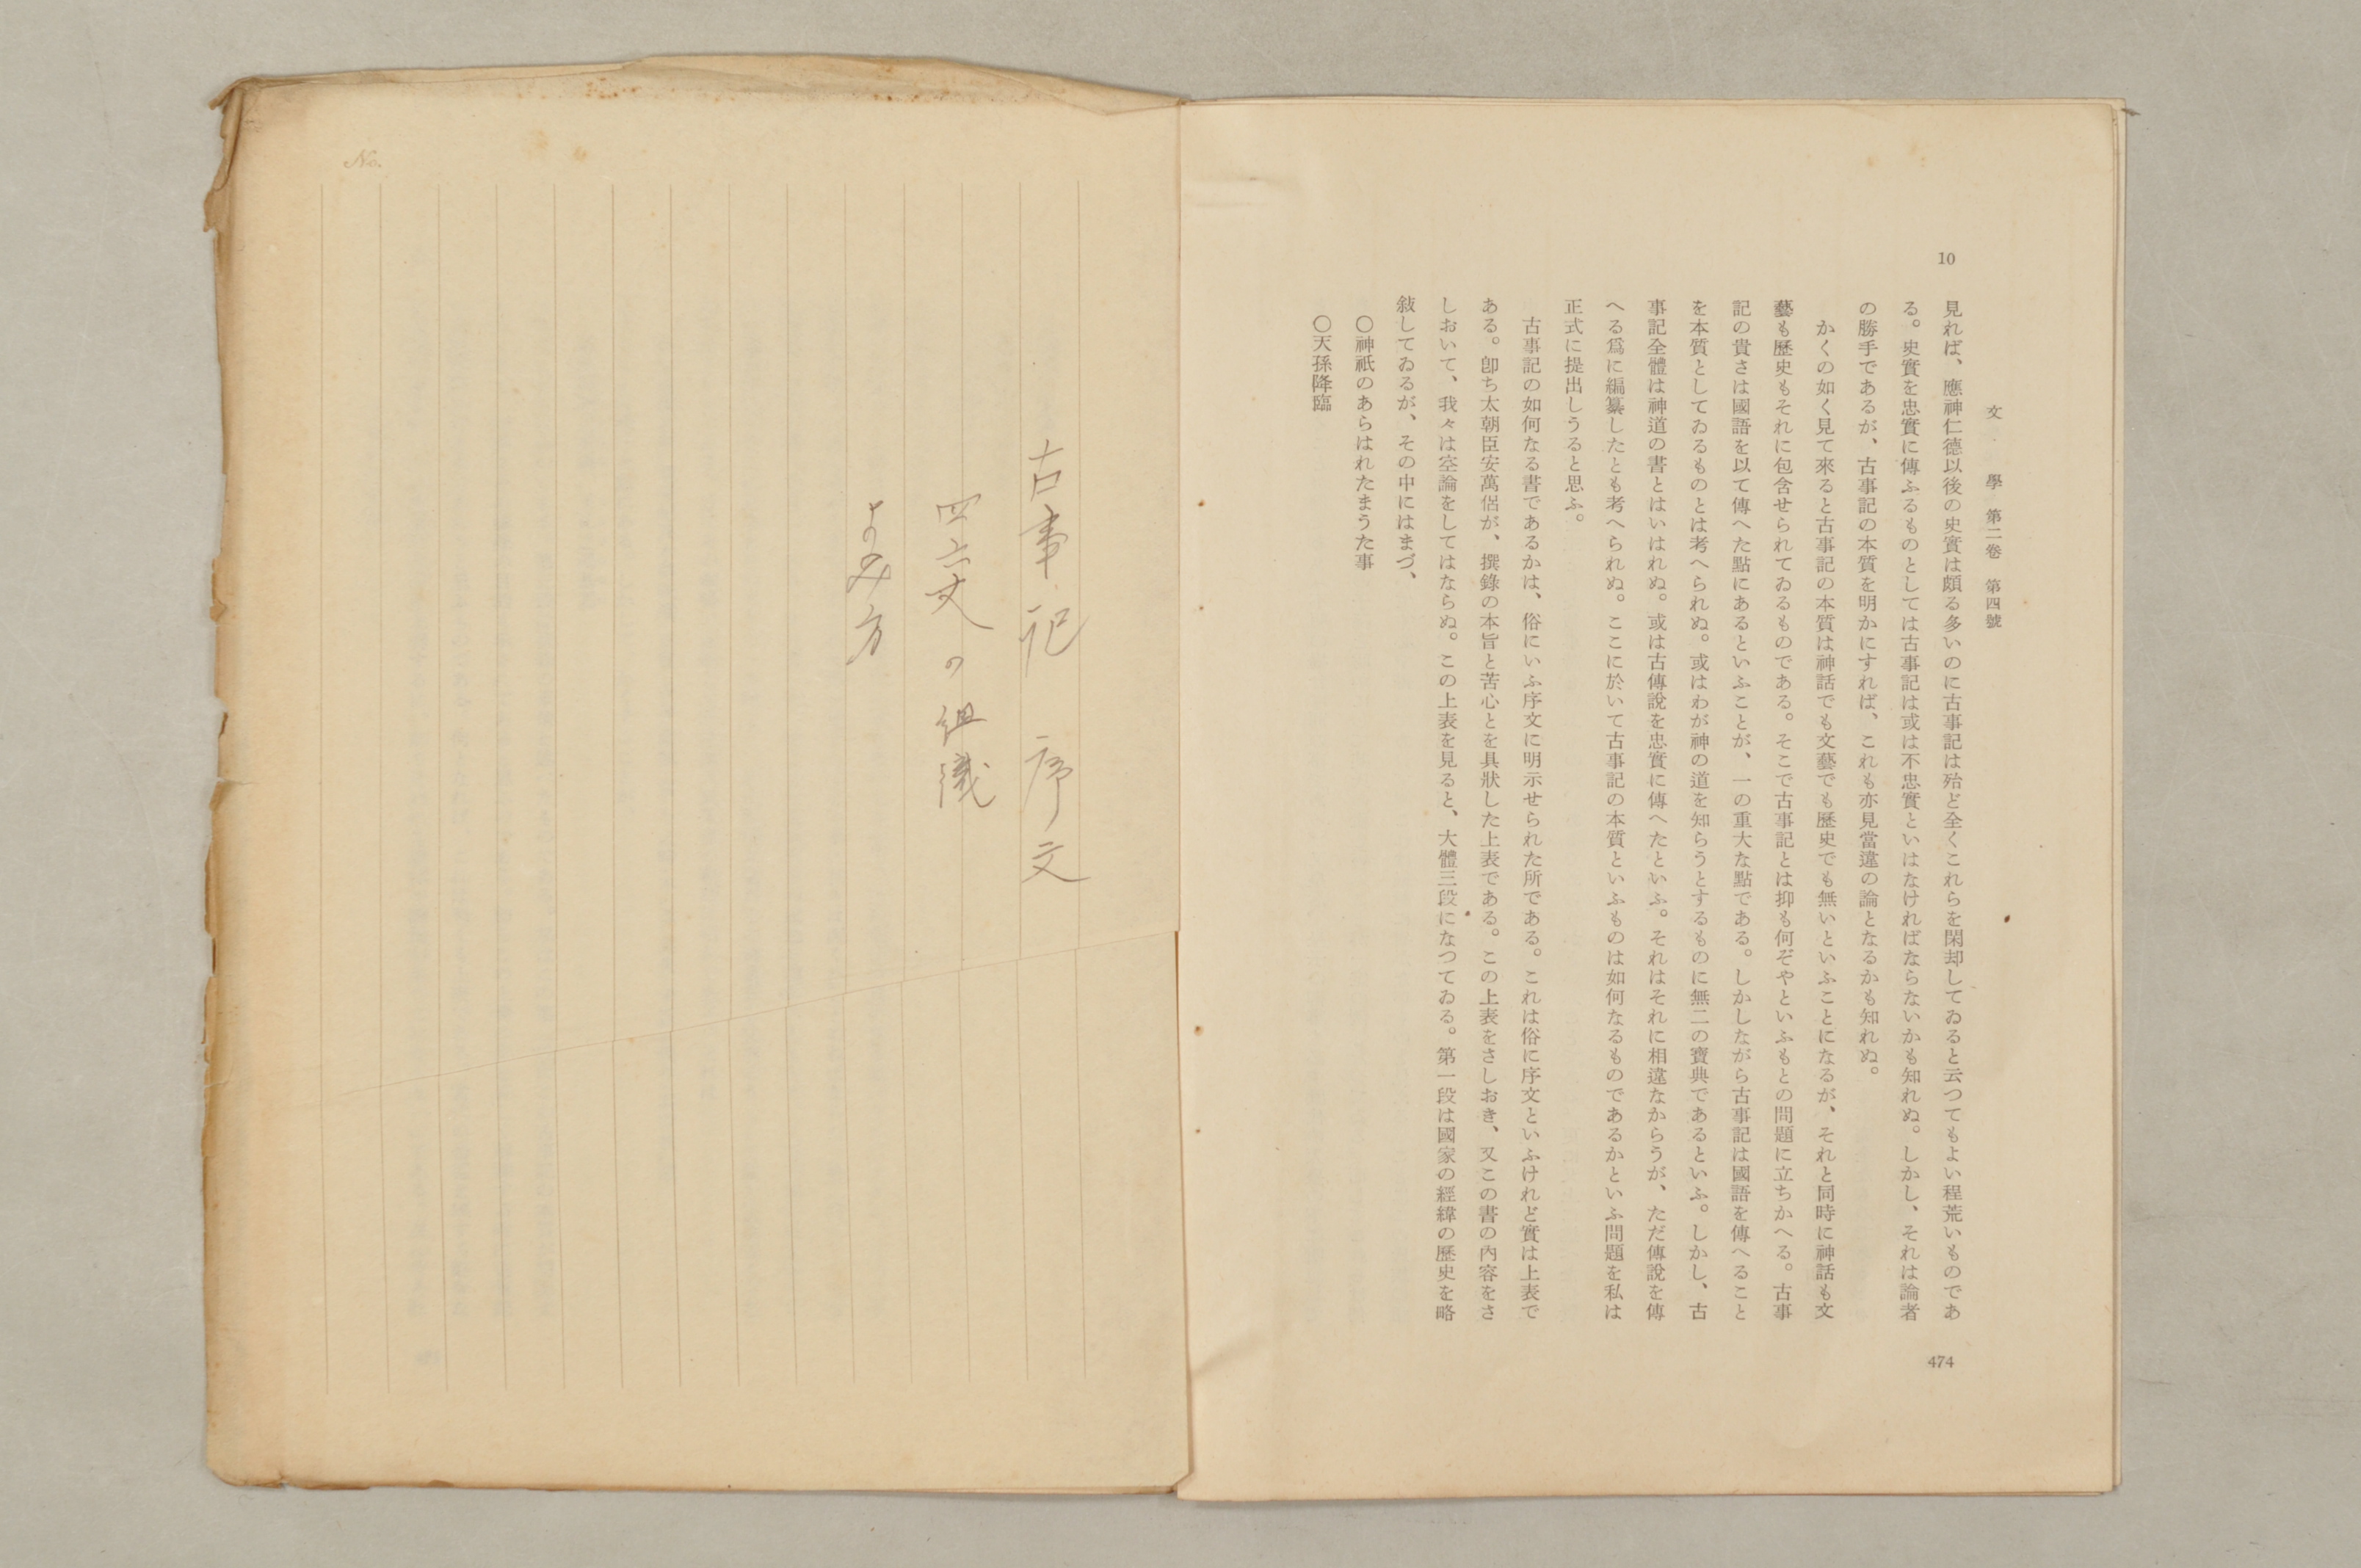 文學 第二卷 第四號
10
見れば、應神仁德以後の史實は頗る多いのに古事記は殆ど全くこれらを閑却してゐると云つてもよい程荒いものであ
る。史實を忠實に傳ふるものとしては古事記は或は不忠實といはなければならないかも知れぬ。しかし、それは論者
の勝手であるが、古事記の本質を明かにすれば、これも亦見當違の論となるかも知れぬ。
かくの如く見て來ると古事記の本質は神話でも文藝でも歷史でも無いといふことになるが、それと同時に神話も文
藝も歷史もそれに包含せられてゐるものである。そこで古事記とは抑も何ぞやといふもとの問題に立ちかへる。古事
記の貴さは國語を以て傳へた點にあるといふことが、一の重大な點である。しかしながら古事記は國語を傳へること
を本質としてゐるものとは考へられぬ。或はわが神の道を知らうとするものに無二の寶典であるといふ。しかし、古
事記全體は神道の書とはいはれぬ。或は古傳說を忠實に傳へたといふ。それはそれに相違なからうが、ただ傳說を傳
へる爲に編纂したとも考へられぬ。ここに於いて古事記の本質といふものは如何なるものであるかといふ問題を私は
正式に提出しうると思ふ。
古事記の如何なる書であるかは、俗にいふ序文に明示せられた所である。これは俗に序文といふけれど實は上表で
ある。卽ち太朝臣安萬侶が、撰錄の本旨と苦心とを具狀した上表である。この上表をさしおき、又この書の內容をさ
しおいて、我々は空論をしてはならぬ。この上表を見ると、大體三段になつてゐる。第一段は國家の經緯の歷史を略
敍してゐるが、その中にはまづ、
〇神祇のあらはれたまうた事
〇天孫降臨
474
古事記 序文
四六文の組織
よみ方
No.